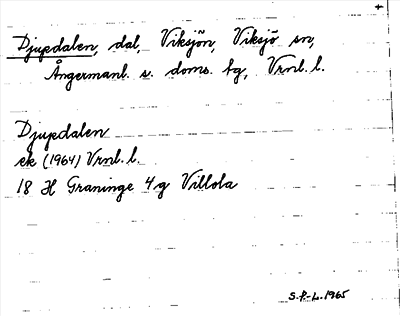 Djupdalen, dal, Viksjön, Viksjö sn,
Ångermanl. s. doms. tg, Vrnl. l.
Djupdalen
ek (1964) Vrnl. l.
18 H Graninge 4g Villola
S.P.-L. 1965